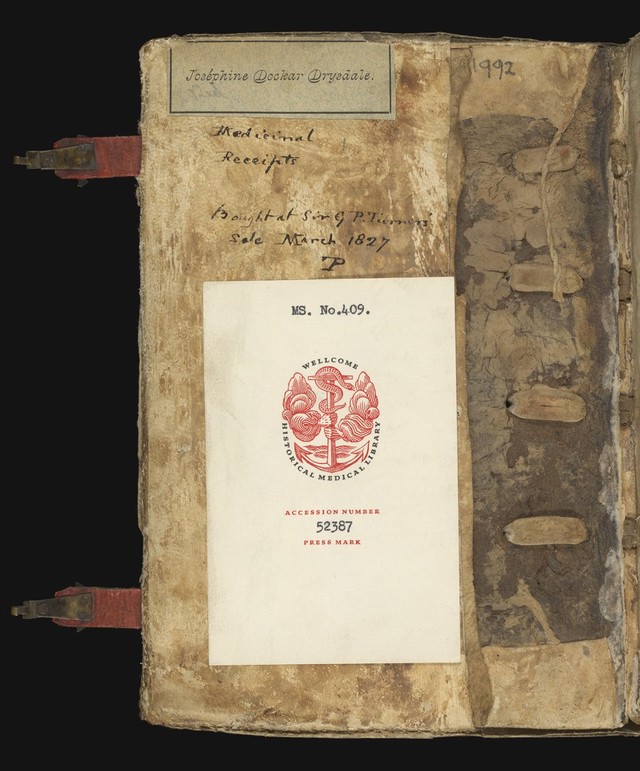 Joséphine Dockar Drysdale.
Medicinal
Receipts
Bought at Sir G P. Turner's
Sale March 1827
P
1992
MS. No.409.
WELLCOME
HISTORICAL MEDICAL LIBRARY
ACCESSION NUMBER
52387
PRESS MARK